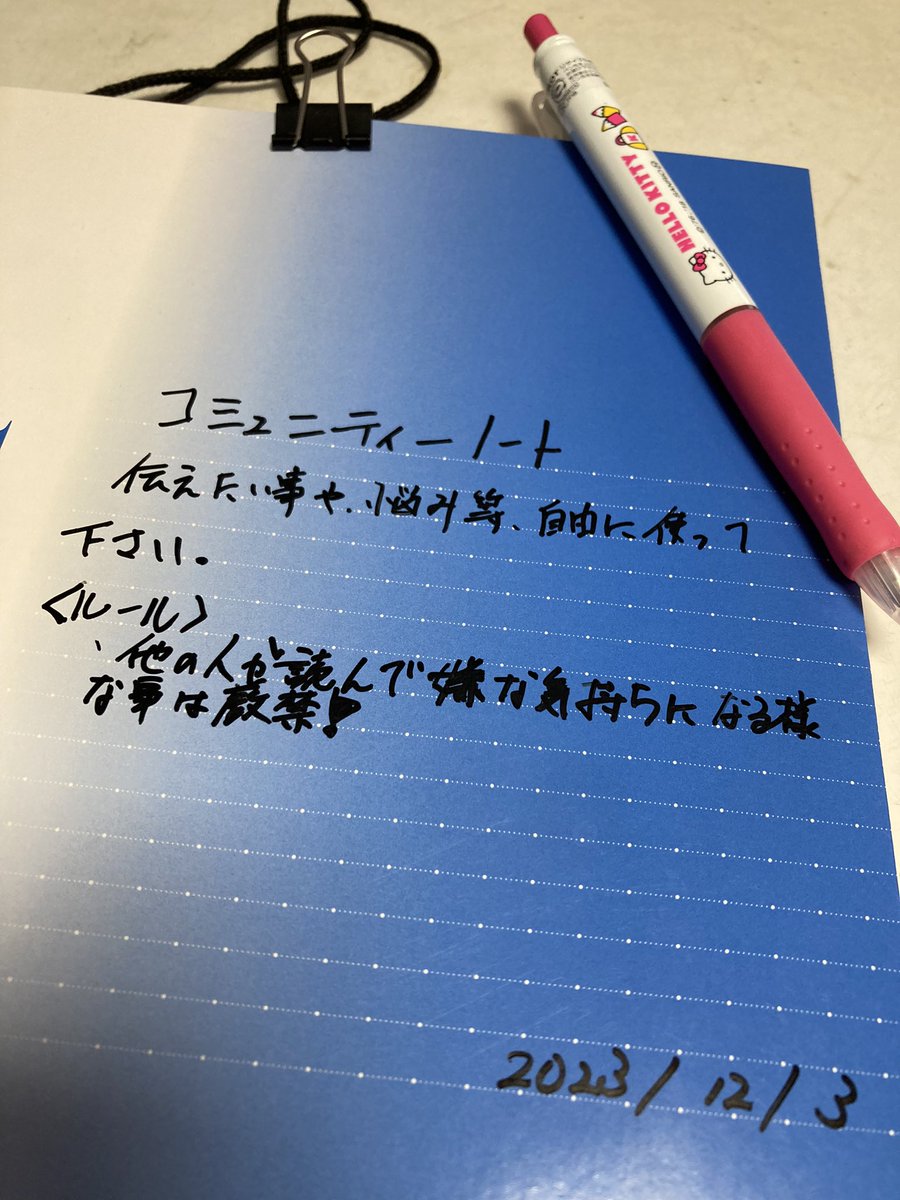 HELLO KITTY
コミュニティーノート
伝えたい事や、悩み等、自由に使って
下さい。
<ルール>
・他の人が読んで嫌な気持ちになる様
な事は厳禁!
2023/12/3